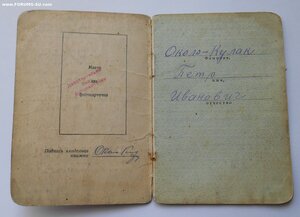 www.FORUMS-SU.com
Место
для
фотокарточки
Подпись владельца
книжки
Около-Кулак
фамилия
Петр
имя
Иванович
отчество